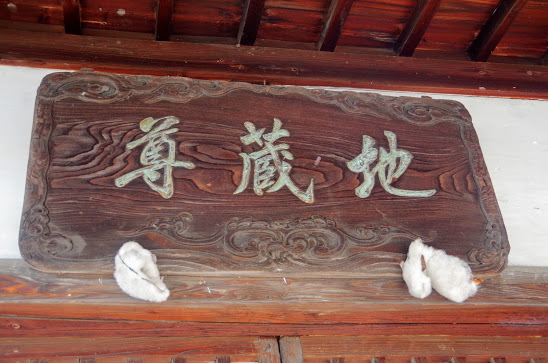 地蔵尊